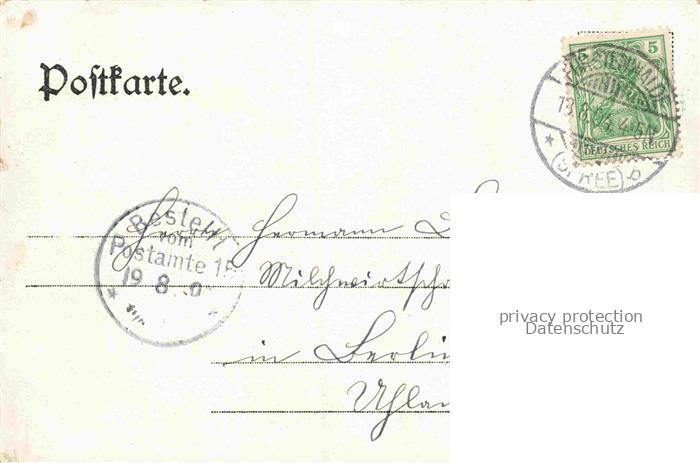 Postkarte.
5
DEUTSCHES REICH
(SPREE) b
Bestellt
vom
Postamte 15
19 8
Herrn Hermann
Milchwirtsch
in Berlin
Uhla
privacy protection
Datenschutz